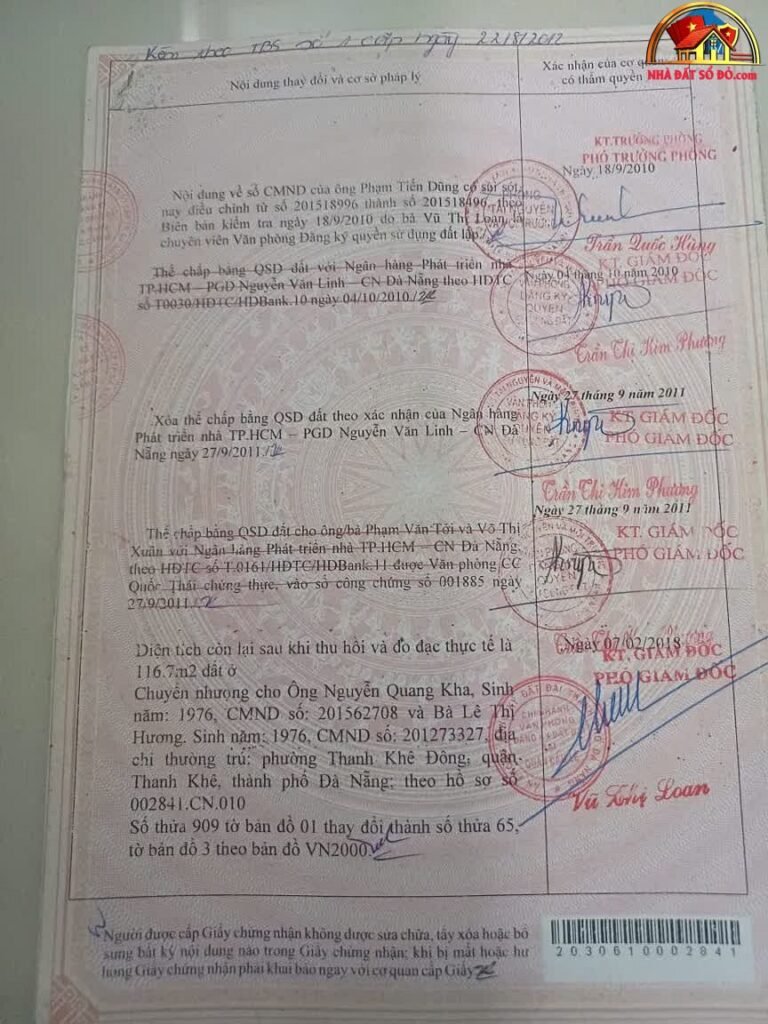 Kèm theo TBS số 1 cấp ngày 22/8/2012
NHÀ ĐẤT SỔ ĐỎ.com
Nội dung thay đổi và cơ sở pháp lý
Xác nhận của cơ quan
có thẩm quyền
KT.TRƯỞNG PHÒNG
PHÓ TRƯỞNG PHÒNG
Ngày 18/9/2010
Nội dung về số CMND của ông Phạm Tiến Dũng có sai sót
nay điều chỉnh từ số 201518996 thành số 201518496 theo
Biên bản kiểm tra ngày 18/9/2010 do bà Vũ Thị Loan là
chuyên viên Văn phòng Đăng ký quyền sử dụng đất lập./.
Trần Quốc Hùng
KT. GIÁM ĐỐC
PHÓ GIÁM ĐỐC
Thế chấp bằng QSD đất với Ngân hàng Phát triển nhà
TP.HCM – PGD Nguyễn Văn Linh – CN Đà Nẵng theo HĐTC
số T0030/HĐTC/HDBank.10 ngày 04/10/2010./
Ngày 04 tháng 10 năm 2010
Trần Thị Kim Phượng
Ngày 27 tháng 9 năm 2011
Xóa thế chấp bằng QSD đất theo xác nhận của Ngân hàng
Phát triển nhà TP.HCM – PGD Nguyễn Văn Linh – CN Đà
Nẵng ngày 27/9/2011./
KT. GIÁM ĐỐC
PHÓ GIÁM ĐỐC
Trần Thị Kim Phượng
Ngày 27 tháng 9 năm 2011
Thế chấp bằng QSD đất cho ông/bà Phạm Văn Tới và Võ Thị
Xuân với Ngân hàng Phát triển nhà TP.HCM – CN Đà Nẵng
theo HĐTC số T.0161/HĐTC/HDBank.11 được Văn phòng CC
Quốc Thái chứng thực, vào sổ công chứng số 001885 ngày
27/9/2011./
KT. GIÁM ĐỐC
PHÓ GIÁM ĐỐC
Ngày 07/02/2018
KT. GIÁM ĐỐC
PHÓ GIÁM ĐỐC
Diện tích còn lại sau khi thu hồi và đo đạc thực tế là
116.7m2 đất ở
Chuyển nhượng cho Ông Nguyễn Quang Kha, Sinh
năm: 1976, CMND số: 201562708 và Bà Lê Thị
Hương. Sinh năm: 1976, CMND số: 201273327, địa
chỉ thường trú: phường Thanh Khê Đông, quận
Thanh Khê, thành phố Đà Nẵng; theo hồ sơ số
002841.CN.010
Vũ Thị Loan
Số thửa 909 tờ bản đồ 01 thay đổi thành số thửa 65,
tờ bản đồ 3 theo bản đồ VN2000
Người được cấp Giấy chứng nhận không được sửa chữa, tẩy xóa hoặc bổ
sung bất kỳ nội dung nào trong Giấy chứng nhận; khi bị mất hoặc hư
hỏng Giấy chứng nhận phải khai báo ngay với cơ quan cấp Giấy
2030610002841